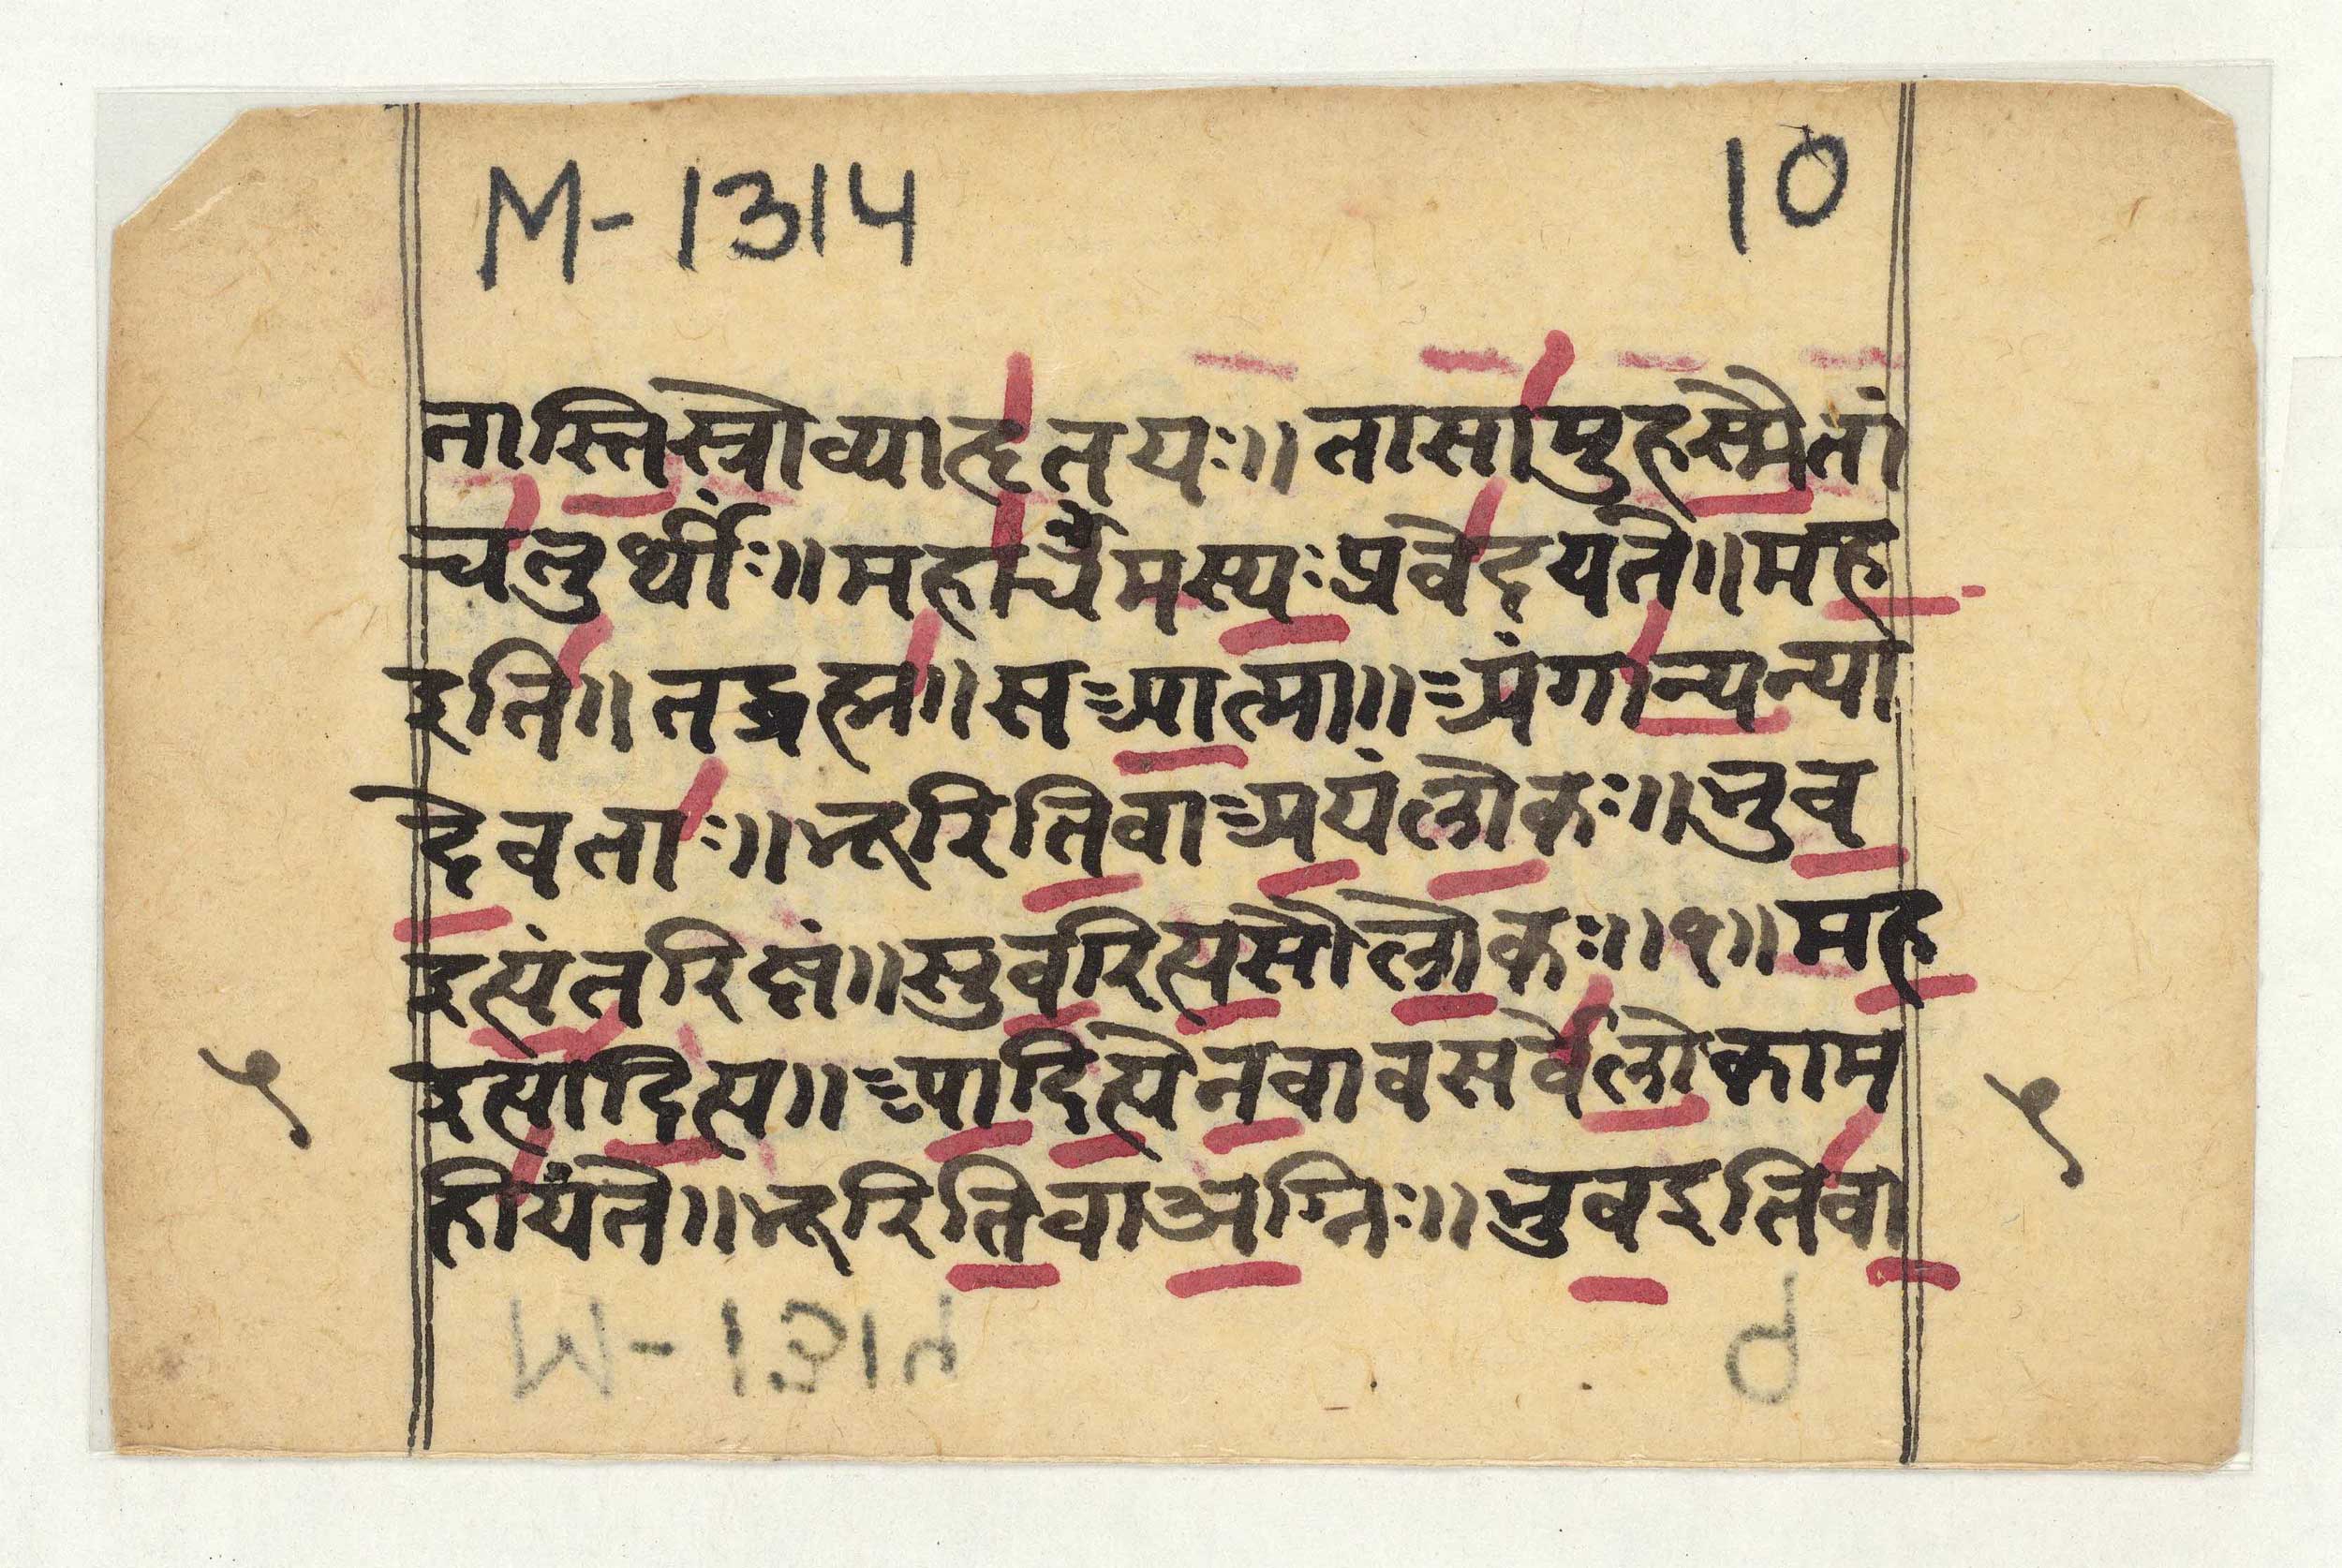 M-1314 10
तास्तिस्त्रोव्याहृतयः॥तासामुहस्मैतां
चतुर्थीं:॥महाचमस्यःप्रवेदयते॥मह
इति॥तद्ब्रह्म॥सआत्मा॥अंगान्यन्या
देवताः॥भूरितिवाअयंलोकः॥भुव
इत्यंतरिक्षं॥सुवरित्यसौलोकः॥१॥मह
इत्यादित्य॥आदित्येनवावसर्वेलोकाम
५ ५
हीयंते॥भूरितिवाअग्निः॥भुवइतिवा